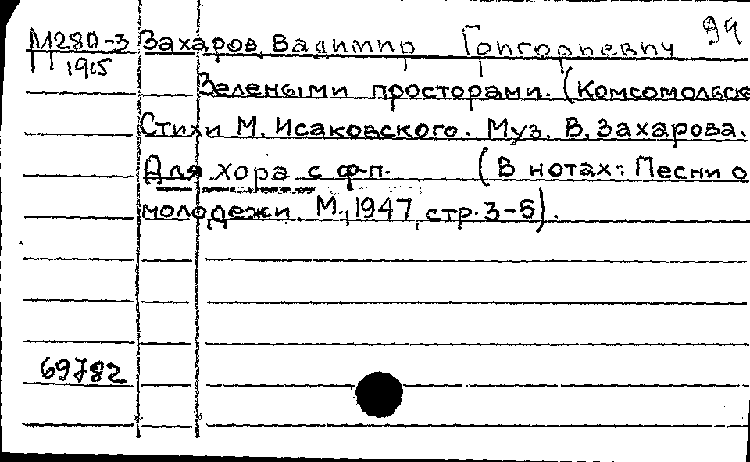 94
М280-3 Захаров, Владимир Григорьевич
1915
Зелеными просторами. (Комсомольск
Стихи М. Исаковского. Муз. В. Захарова.
Для хора с ф-п. (В нотах: Песни о
молодежи. М., 1947, стр. 3-5).
69782